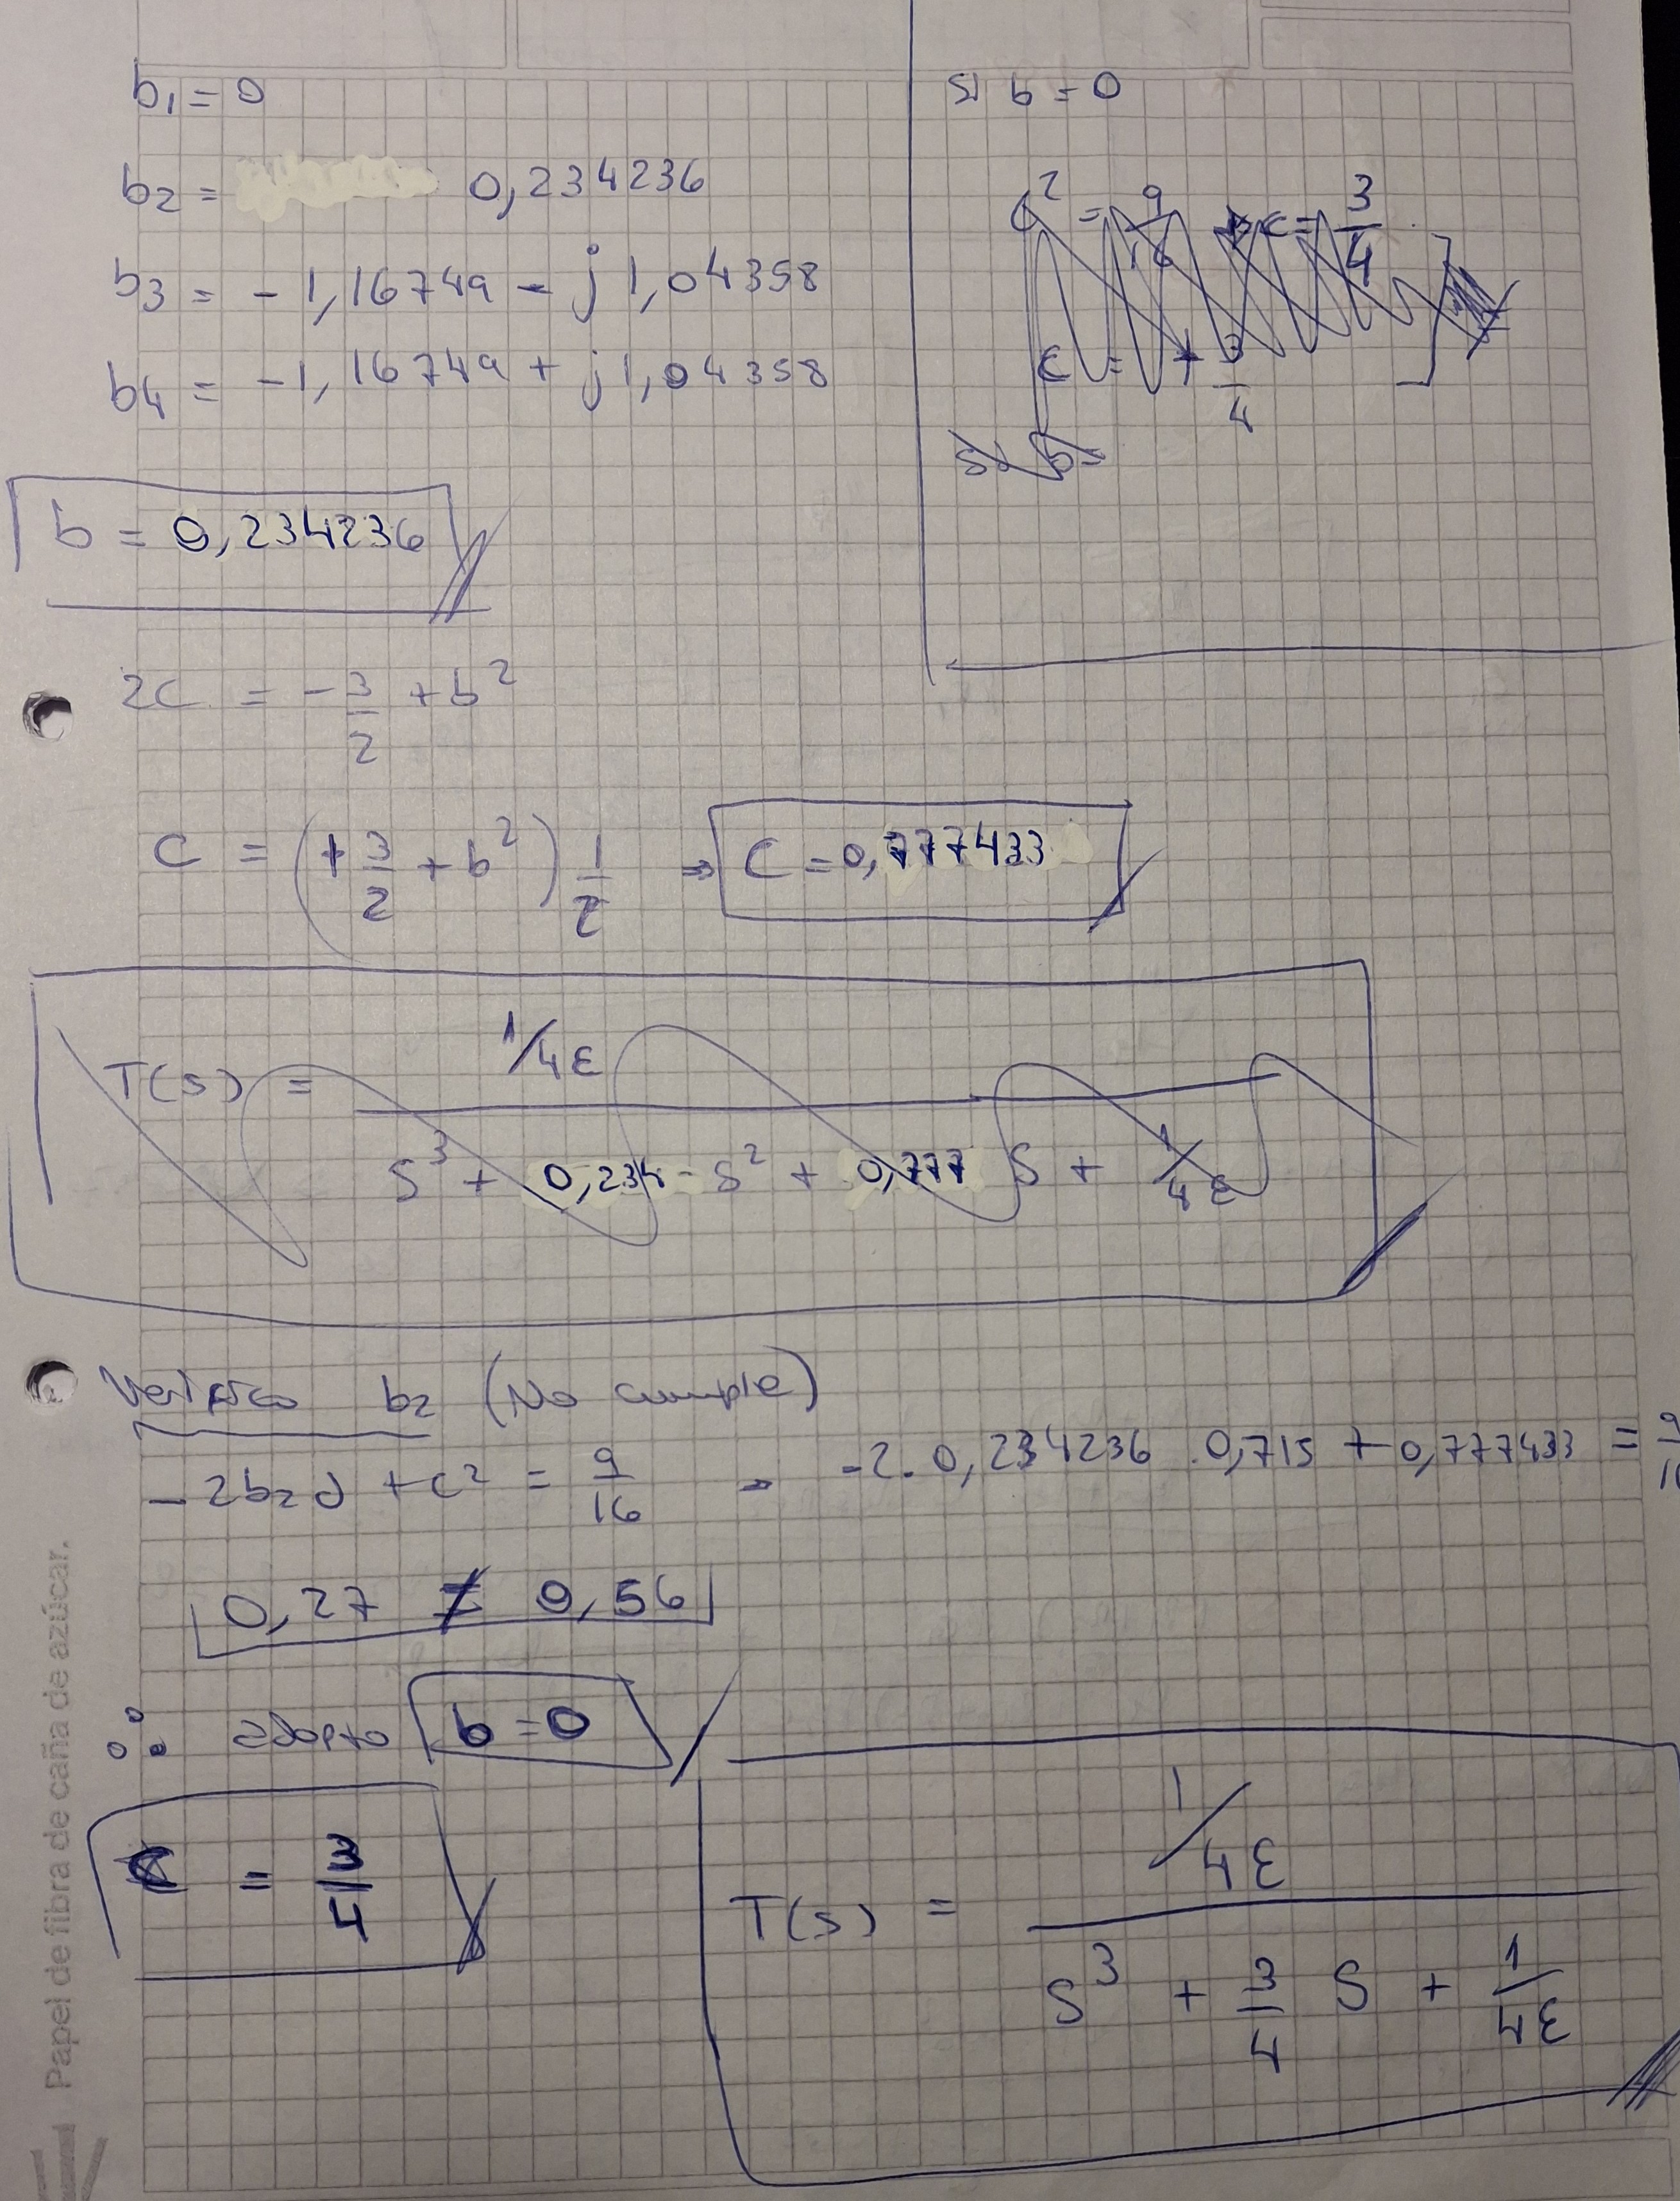 b₁ = 0
b₂ = 0,234236
b₃ = -1,16749 - j 1,04358
b₄ = -1,16749 + j 1,04358
b = 0,234236
Si b = 0
c² = 9/16 c = 3/4
c = + 3/4
Si b =
2c = -3/2 + b²
C = (+3/2 + b²) 1/2 ⇒ C = 0,777433
T(s) = 1/4ε / S³ + 0,234 - S² + 0,777 S + 1/4ε
Verifico b₂ (No cumple)
-2b₂d + c² = 9/16 → -2. 0,234236 . 0,715 + 0,777433 = 9/16
0,27 ≠ 0,56
∴ adopto b = 0
C = 3/4
T(s) = 1/4ε / S³ + 3/4 S + 1/4ε
Papel de fibra de caña de azúcar.